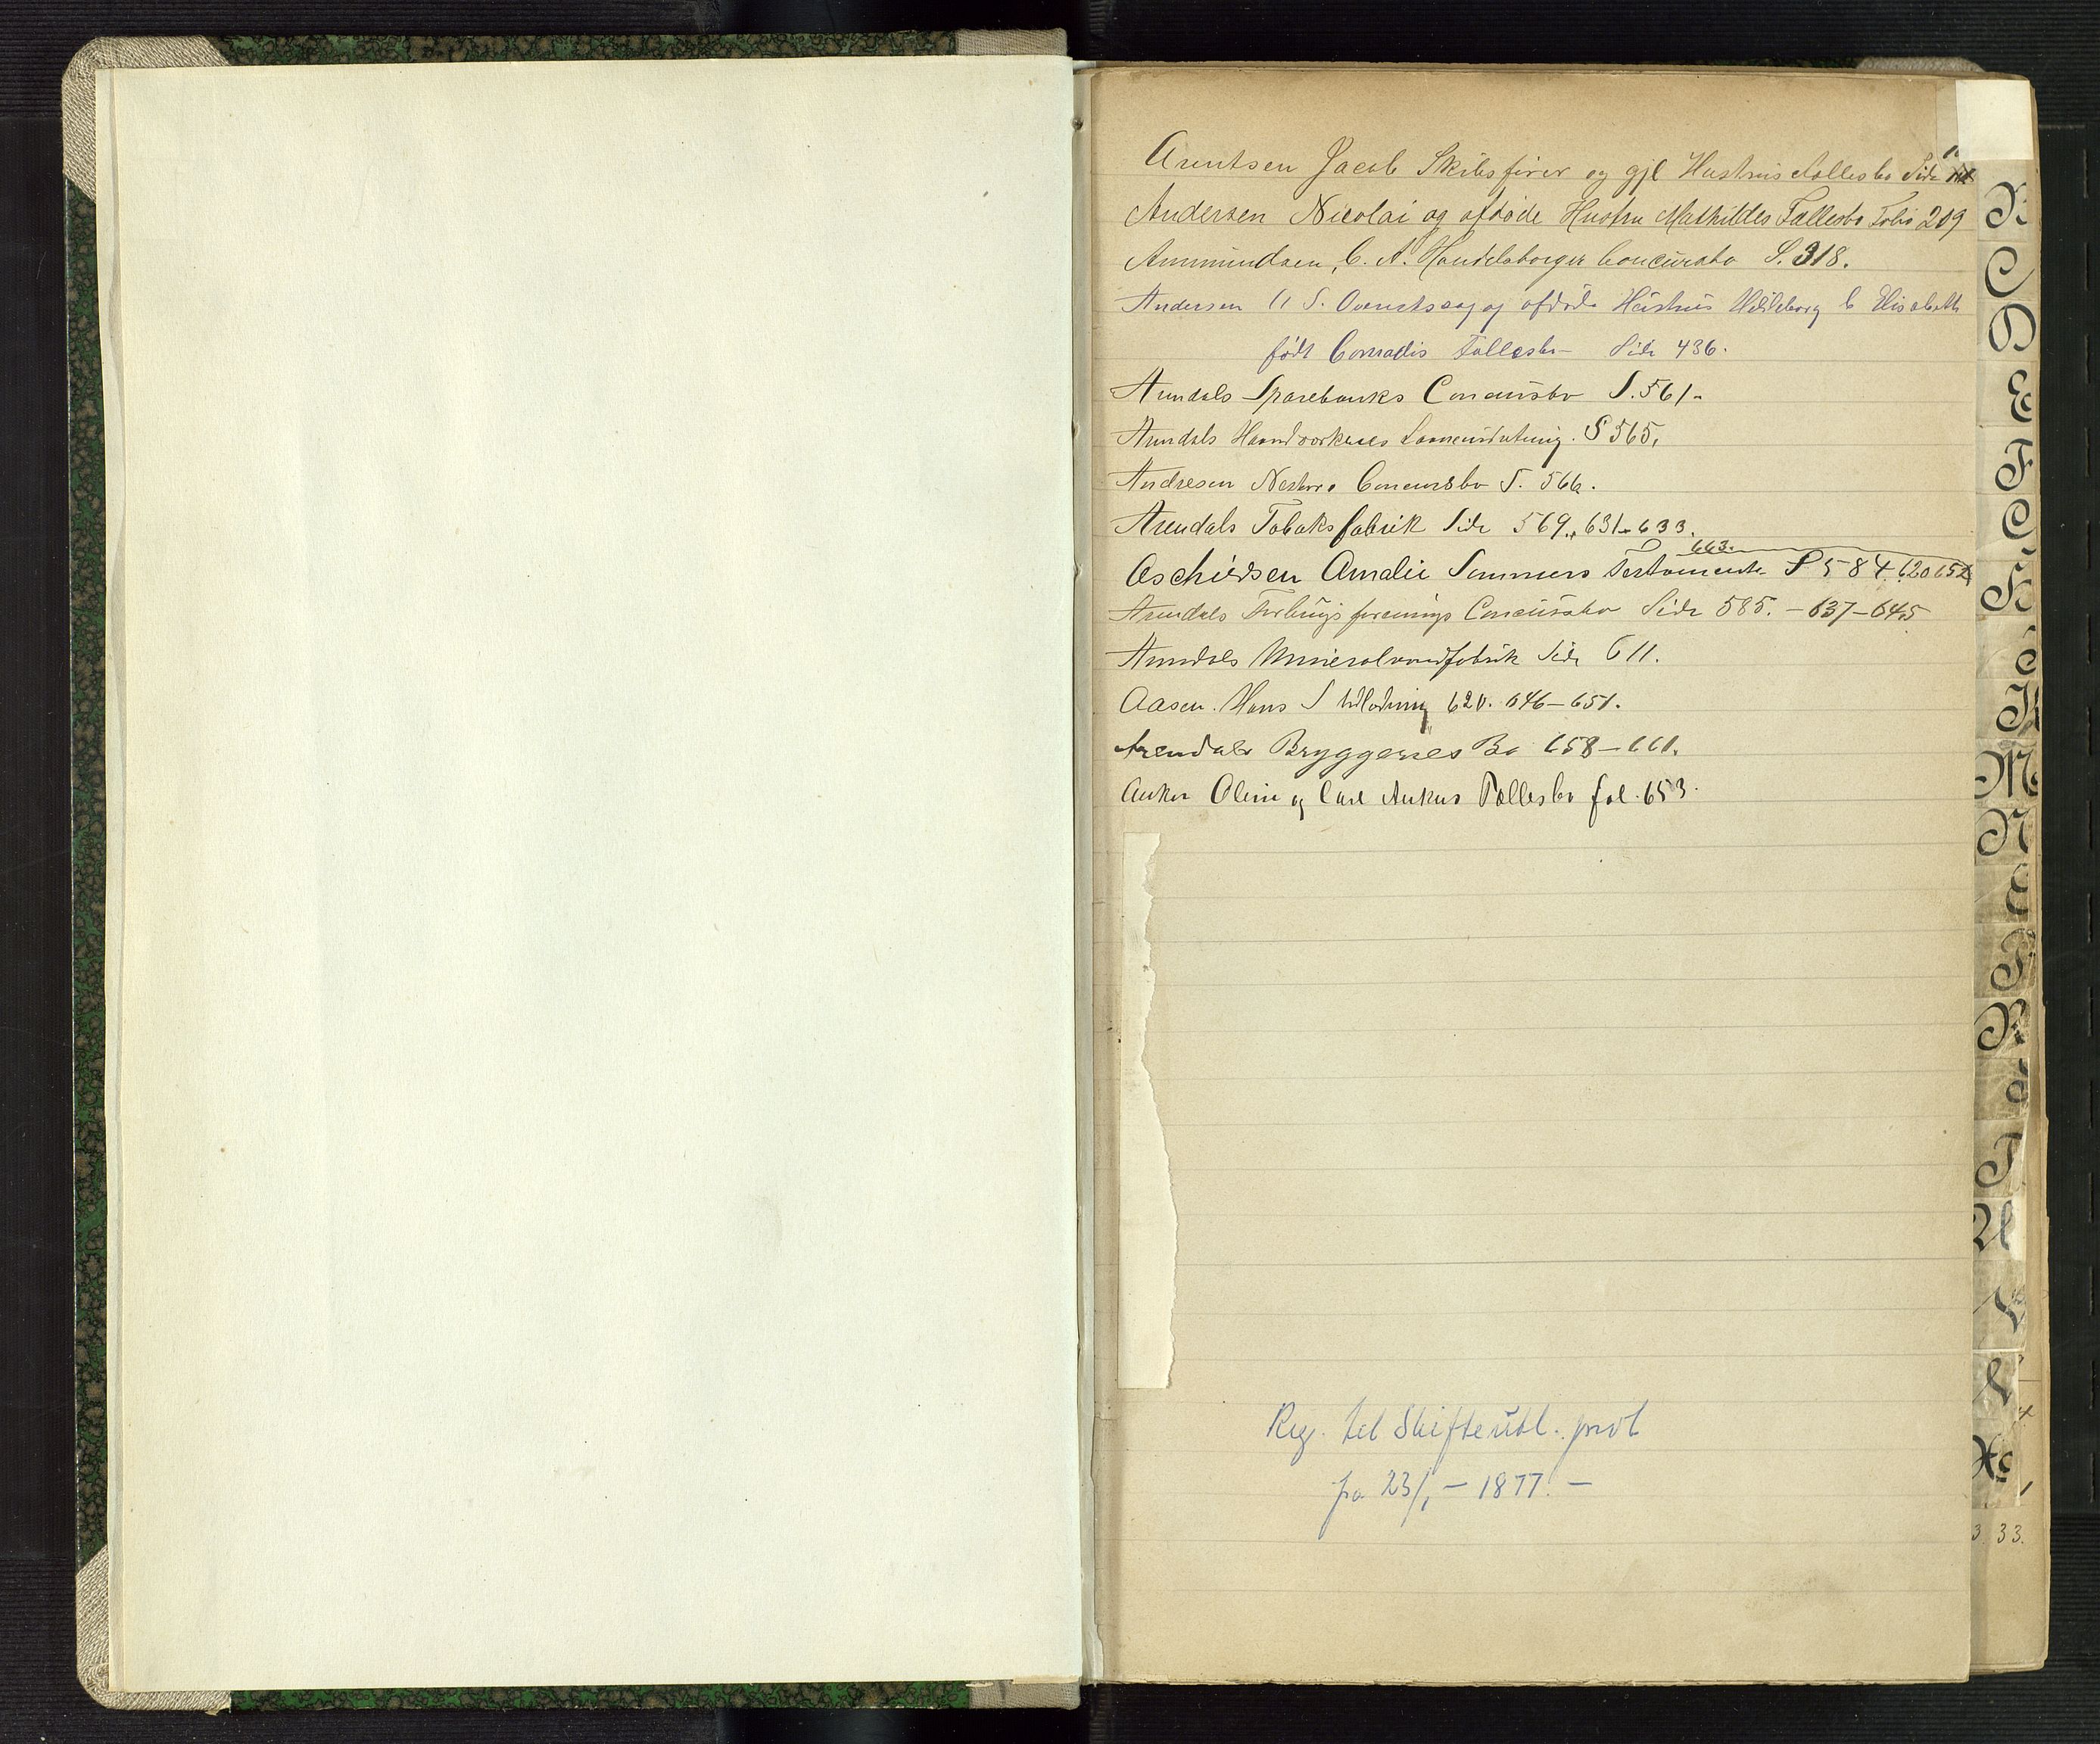 Arentsen Jacob Skibsfører og gjl Hustrus Fællesbo Side
Andersen Nicolai og afdøde Hustru Mathildes Fællesbo Folio 209
Ammundsen, C. A. Handelsborger Concursbo S. 318.
Andersen S. og afdøde Hustrus C Elisabeth
født Conradis Fællesbo Side 436.
Arendals Sparebanks Concursbo S. 561.
Arendals Haandværkeres Laaneindretning. S 565.
Andresen Concursbo S. 566.
Arendals Tobaksfabrik Side 569., 631-633.
663.
Aschielsen Amalie Testamente S 584, 620 652
Arendals Forbrugsforenings Concursbo Side 585. - 637-645
Arendals Mineralvandfabrik Side 611.
Aasen. Hans S Udlodning 620. 646-651.
Arendals Bryggeries Bo 658-661.
Anker Oline og Carl Ankers Fællesbo fol. 653.
Reg. til Skifteutl. prot
fra 23/1 - 1877. -
B
C
D
E
F
M
N
P
R
T
U
3 33.